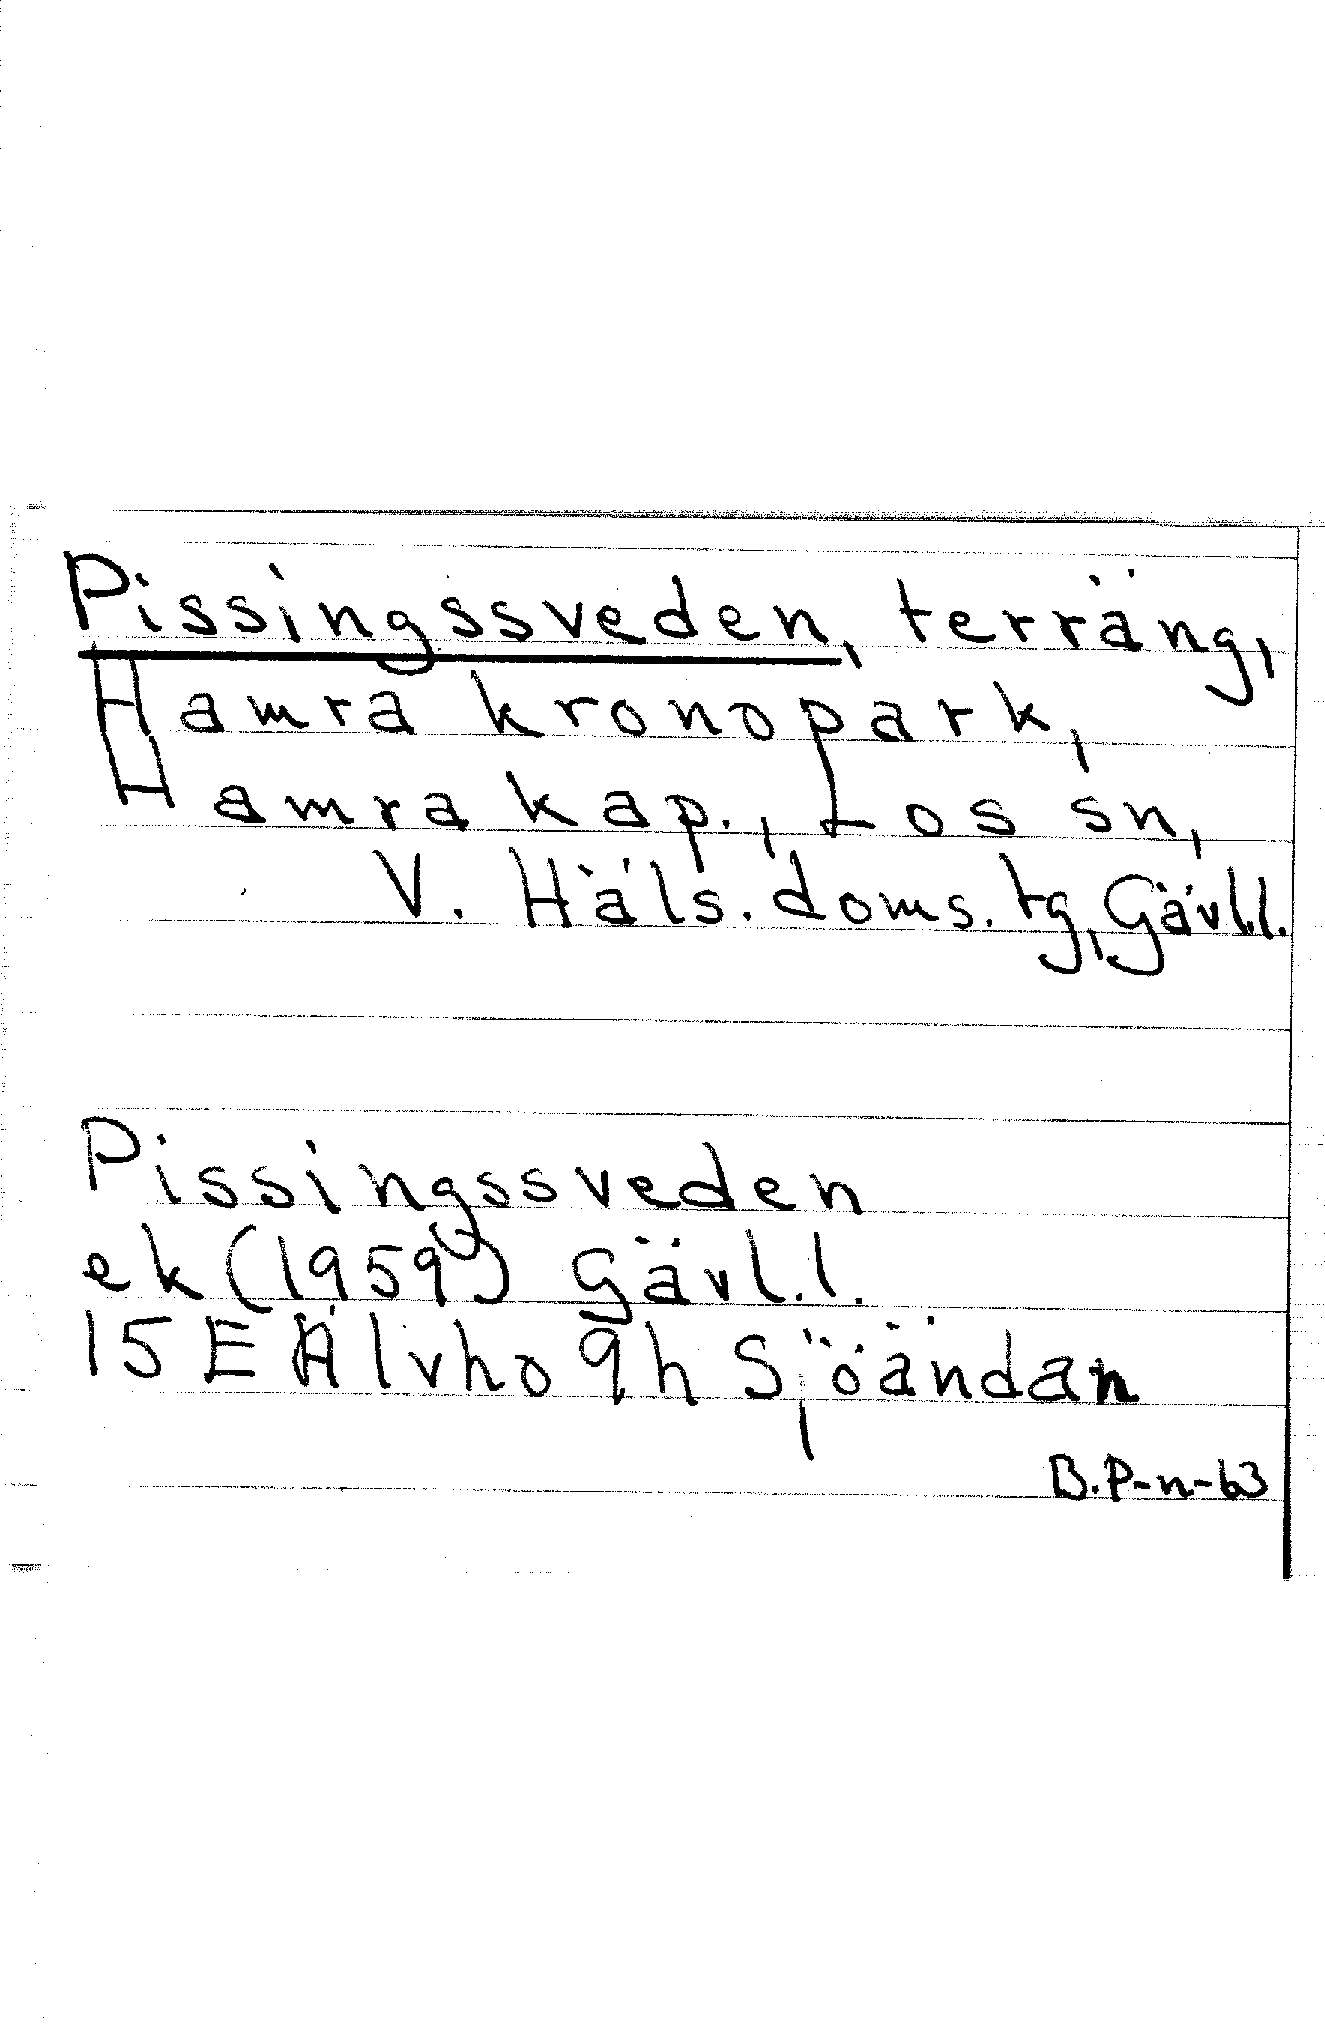 Pissingssveden, terräng,
Hamra kronopark,
Hamra kap., Los sn,
V. Häls. doms. tg, Gävl.l.
Pissingssveden
ek (1959) Gävl.l.
15 E Älvho 9h Sjöändan
B.P-n-63